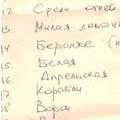 12. Среди огней
13. Милая девочк
14. Беранже (
15. Белая
16. Апрельская
17. Корабли
18. Ворон